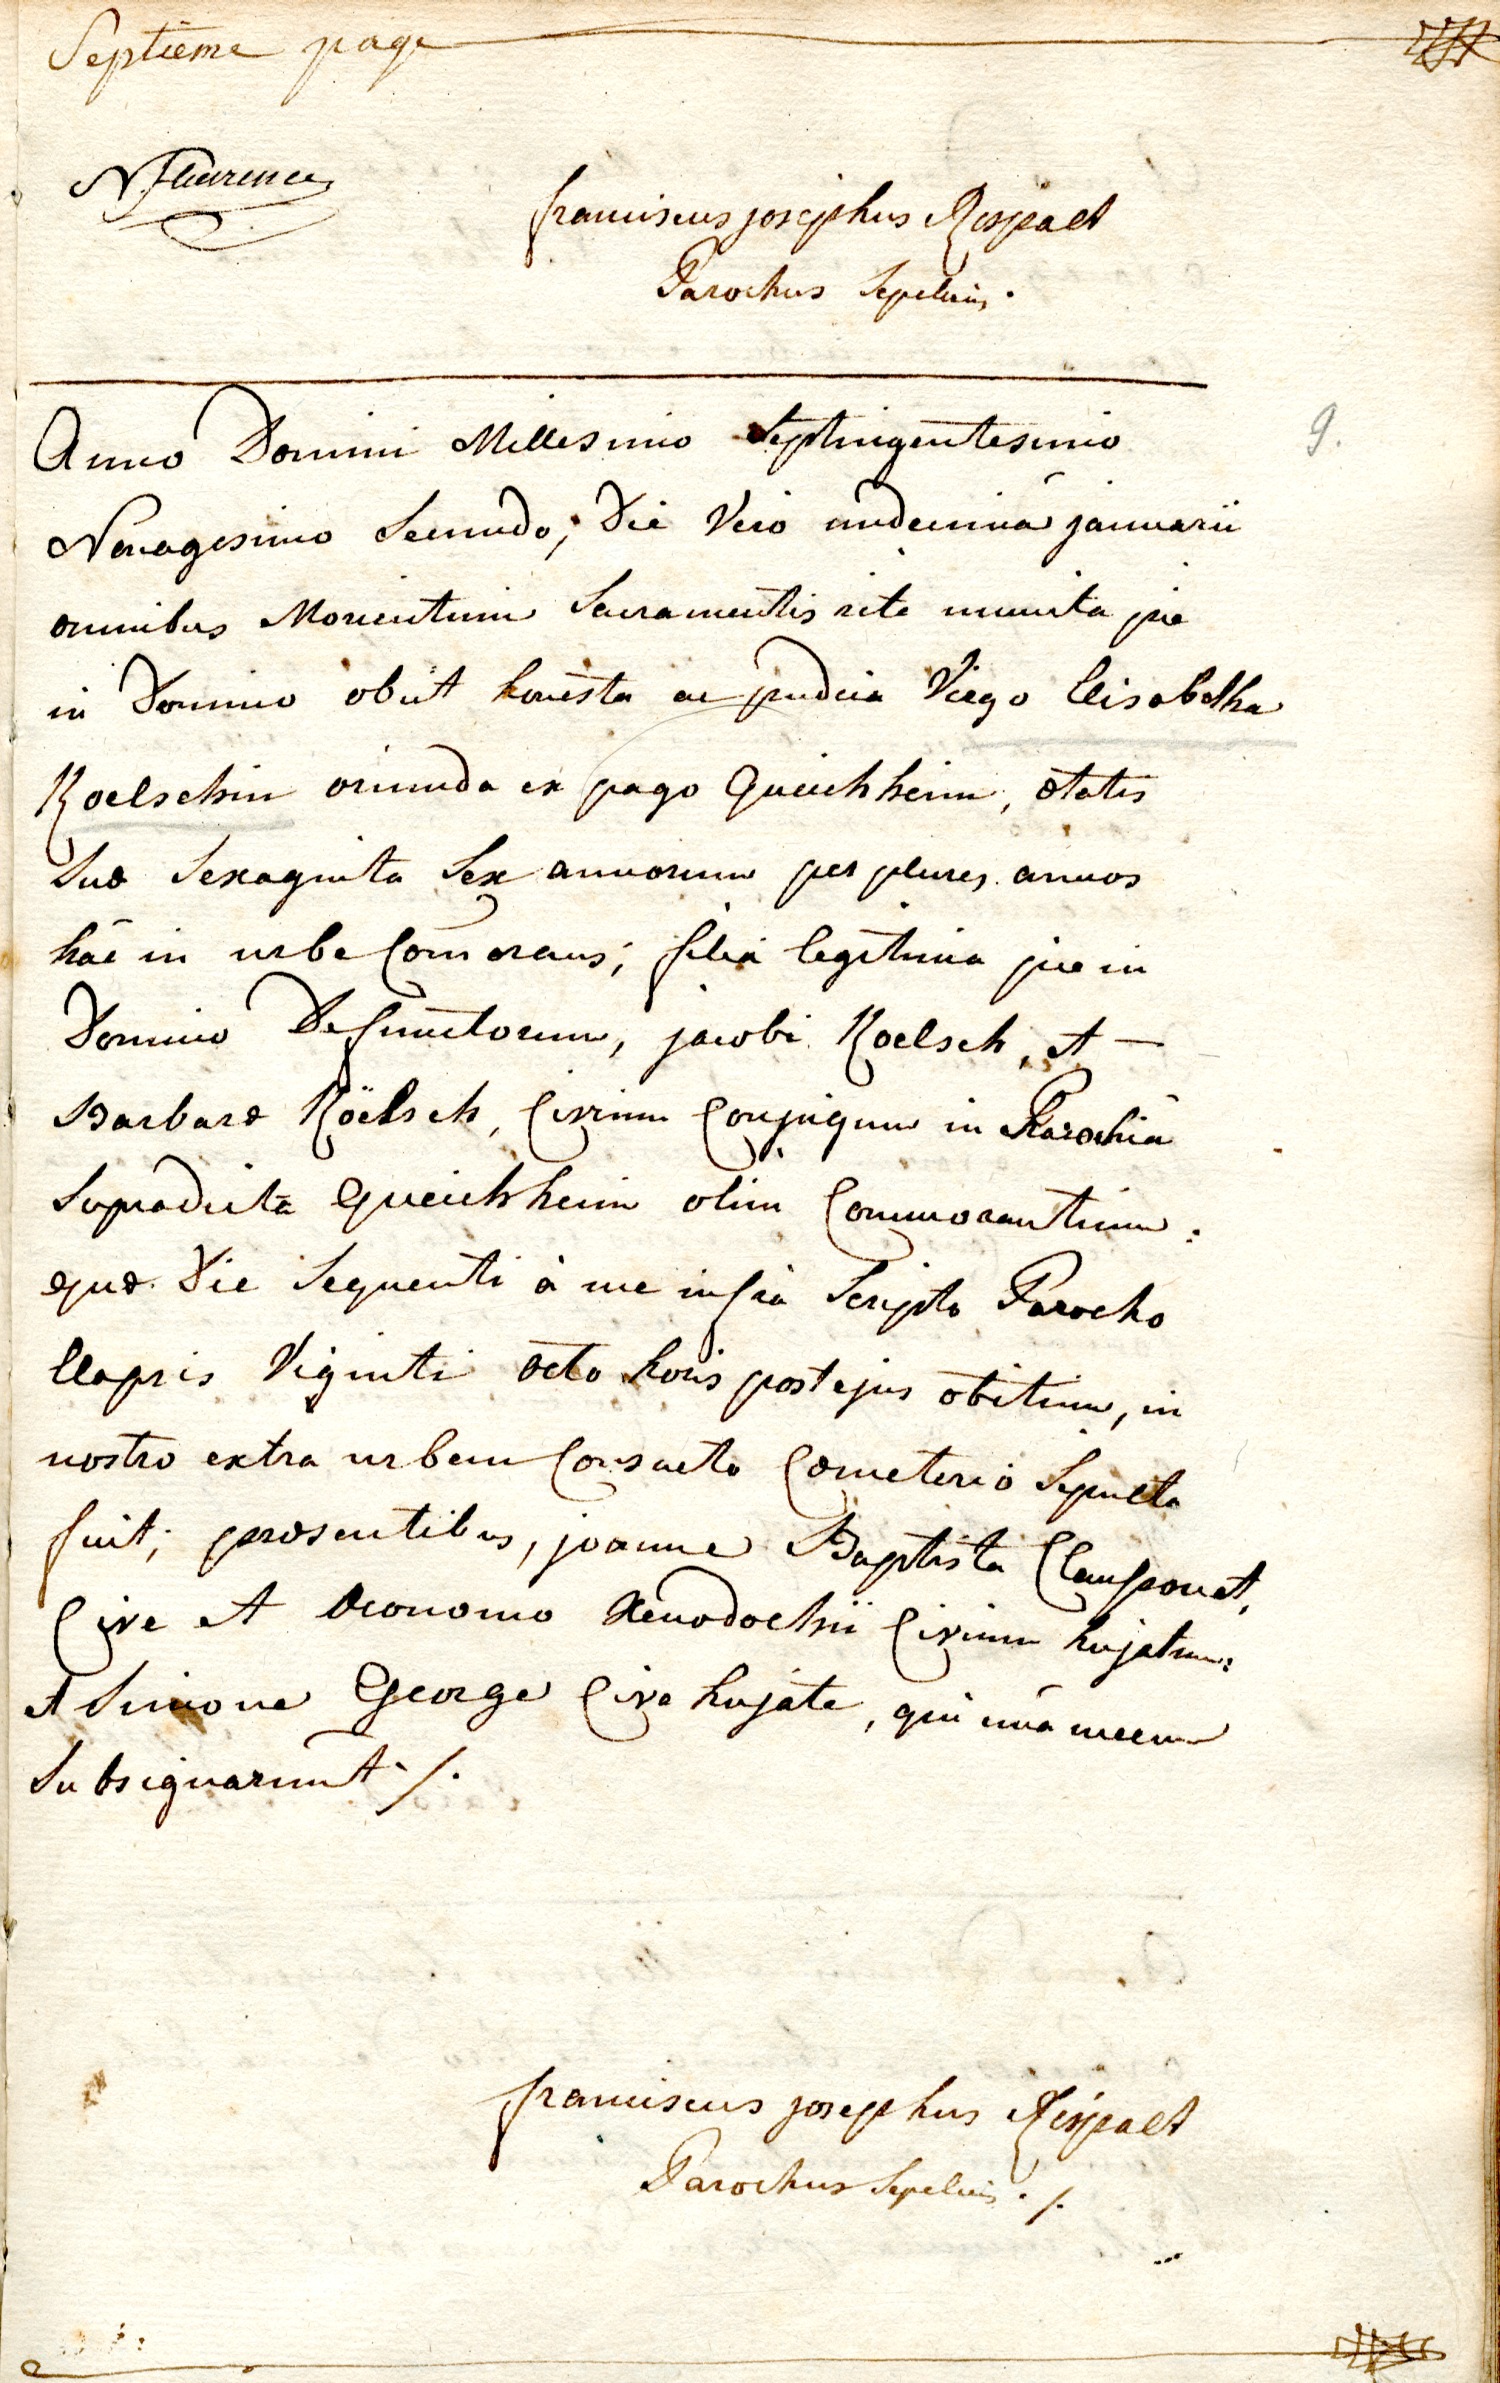 Septieme page
N. Flúrence
franciscus josephus Rospalt
Parochus Sepeliens.
9.
Anno Domini Millesimo Septingentesimo
Nonagesimo Secundo, Die Vero undecimâ januarii
omnibus Morientium Sacramentis rite munita pie
in Domino obiit honesta ac pudica Virgo Elisabetha
Koelschin oriunda ex pago Queichheim, ætatis
Suæ Sexaginta Sex annorum per plures annos
hâc in urbe Com̄orans; filia legitima pie in
Domino Defunctorum, jacobi Koelsch, et —
Barbaræ Köelsch, Civium Conjugum in Parochiâ
Supradictâ Queichheim olim Commorantium:
quæ Die Sequenti à me infra Scripto Parocho
Elapsis Viginti octo horis post ejus obitum, in
nostro extra urbem Consueto Cœmeterio Sepulta
fuit; præsentibus, joanne Baptista Clausponet,
Cive et Oeconomo Xenodochii Civium hujatum:
et Simone George Cive hujate, qui unâ mecum
Subsignarunt ·/.
franciscus josephus Rospalt
Parochus Sepeliens ·/.